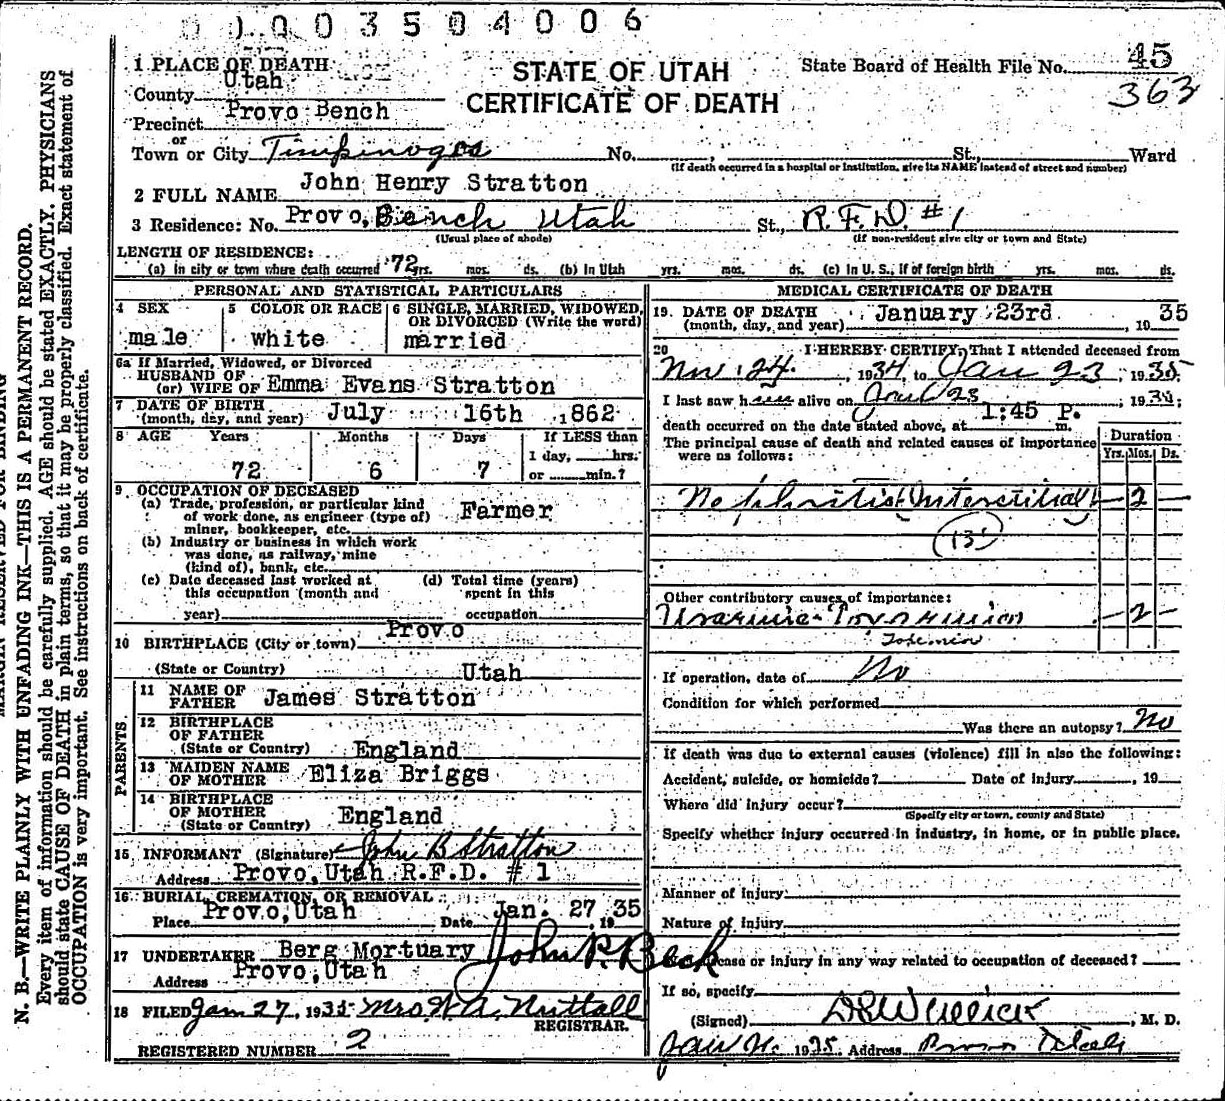 0003504006
1 PLACE OF DEATH
STATE OF UTAH
CERTIFICATE OF DEATH
State Board of Health File No. 45
363
County Utah
Precinct Provo Bench
or
Town or City Timpinogos No. , St., Ward
(If death occurred in a hospital or institution, give its NAME instead of street and number)
2 FULL NAME John Henry Stratton
3 Residence: No. Provo, Bench Utah St., R.F.D. #1
(Usual place of abode) (If non-resident give city or town and State)
LENGTH OF RESIDENCE:
(a) In city or town where death occurred 72 yrs. mos. ds. (b) In Utah yrs. mos. ds. (c) In U. S., if of foreign birth yrs. mos. ds.
PERSONAL AND STATISTICAL PARTICULARS
4 SEX 5 COLOR OR RACE 6 SINGLE, MARRIED, WIDOWED,
OR DIVORCED (Write the word)
male white married
6a If Married, Widowed, or Divorced
HUSBAND OF
(or) WIFE OF Emma Evans Stratton
7 DATE OF BIRTH
(month, day, and year) July 16th ,1862
8 AGE Years Months Days If LESS than
1 day, hrs.
72 6 7 or min.?
9 OCCUPATION OF DECEASED
(a) Trade, profession, or particular kind
of work done, as engineer (type of)
miner, bookkeeper, etc. Farmer
(b) Industry or business in which work
was done, as railway, mine
(kind of), bank, etc.
(c) Date deceased last worked at
this occupation (month and
year)
(d) Total time (years)
spent in this
occupation
10 BIRTHPLACE (City or town) Provo
(State or Country) Utah
PARENTS
11 NAME OF
FATHER James Stratton
12 BIRTHPLACE
OF FATHER
(State or Country) England
13 MAIDEN NAME
OF MOTHER Eliza Briggs
14 BIRTHPLACE
OF MOTHER
(State or Country) England
15 INFORMANT (Signature) John B Stratton
Address Provo, Utah R.F.D. # 1
16 BURIAL, CREMATION, OR REMOVAL
Place Provo, Utah Date Jan. 27 19 35
17 UNDERTAKER Berg Mortuary John P. Beck
Address Provo, Utah
18 FILED Jan 27, 1935 Mrs. W. A. Nuttall
REGISTRAR.
REGISTERED NUMBER 2
MEDICAL CERTIFICATE OF DEATH
19. DATE OF DEATH
(month, day, and year) January 23rd , 19 35
20 I HEREBY CERTIFY, That I attended deceased from
Nov 24. , 1934, to Jan 23 , 1935
I last saw him alive on Jan 23 , 19
death occurred on the date stated above, at 1:45 P. m.
The principal cause of death and related causes of importance
were as follows:
Duration
Yrs. Mos. Ds.
Nephritis Interstitial — 2 —
Other contributory causes of importance:
— 2 —
If operation, date of No
Condition for which performed
Was there an autopsy? No
If death was due to external causes (violence) fill in also the following:
Accident, suicide, or homicide? Date of Injury , 19
Where did injury occur?
(Specify city or town, county and State)
Specify whether injury occurred in industry, in home, or in public place.
Manner of Injury
Nature of Injury
disease or injury in any way related to occupation of deceased?
If so, specify
(Signed) , M. D.
Jan 1935 Address Provo Utah
MARGIN RESERVED FOR BINDING
N. B.—WRITE PLAINLY WITH UNFADING INK—THIS IS A PERMANENT RECORD.
Every item of information should be carefully supplied. AGE should be stated EXACTLY. PHYSICIANS
should state CAUSE OF DEATH in plain terms, so that it may be properly classified. Exact statement of
OCCUPATION is very important. See instructions on back of certificate.